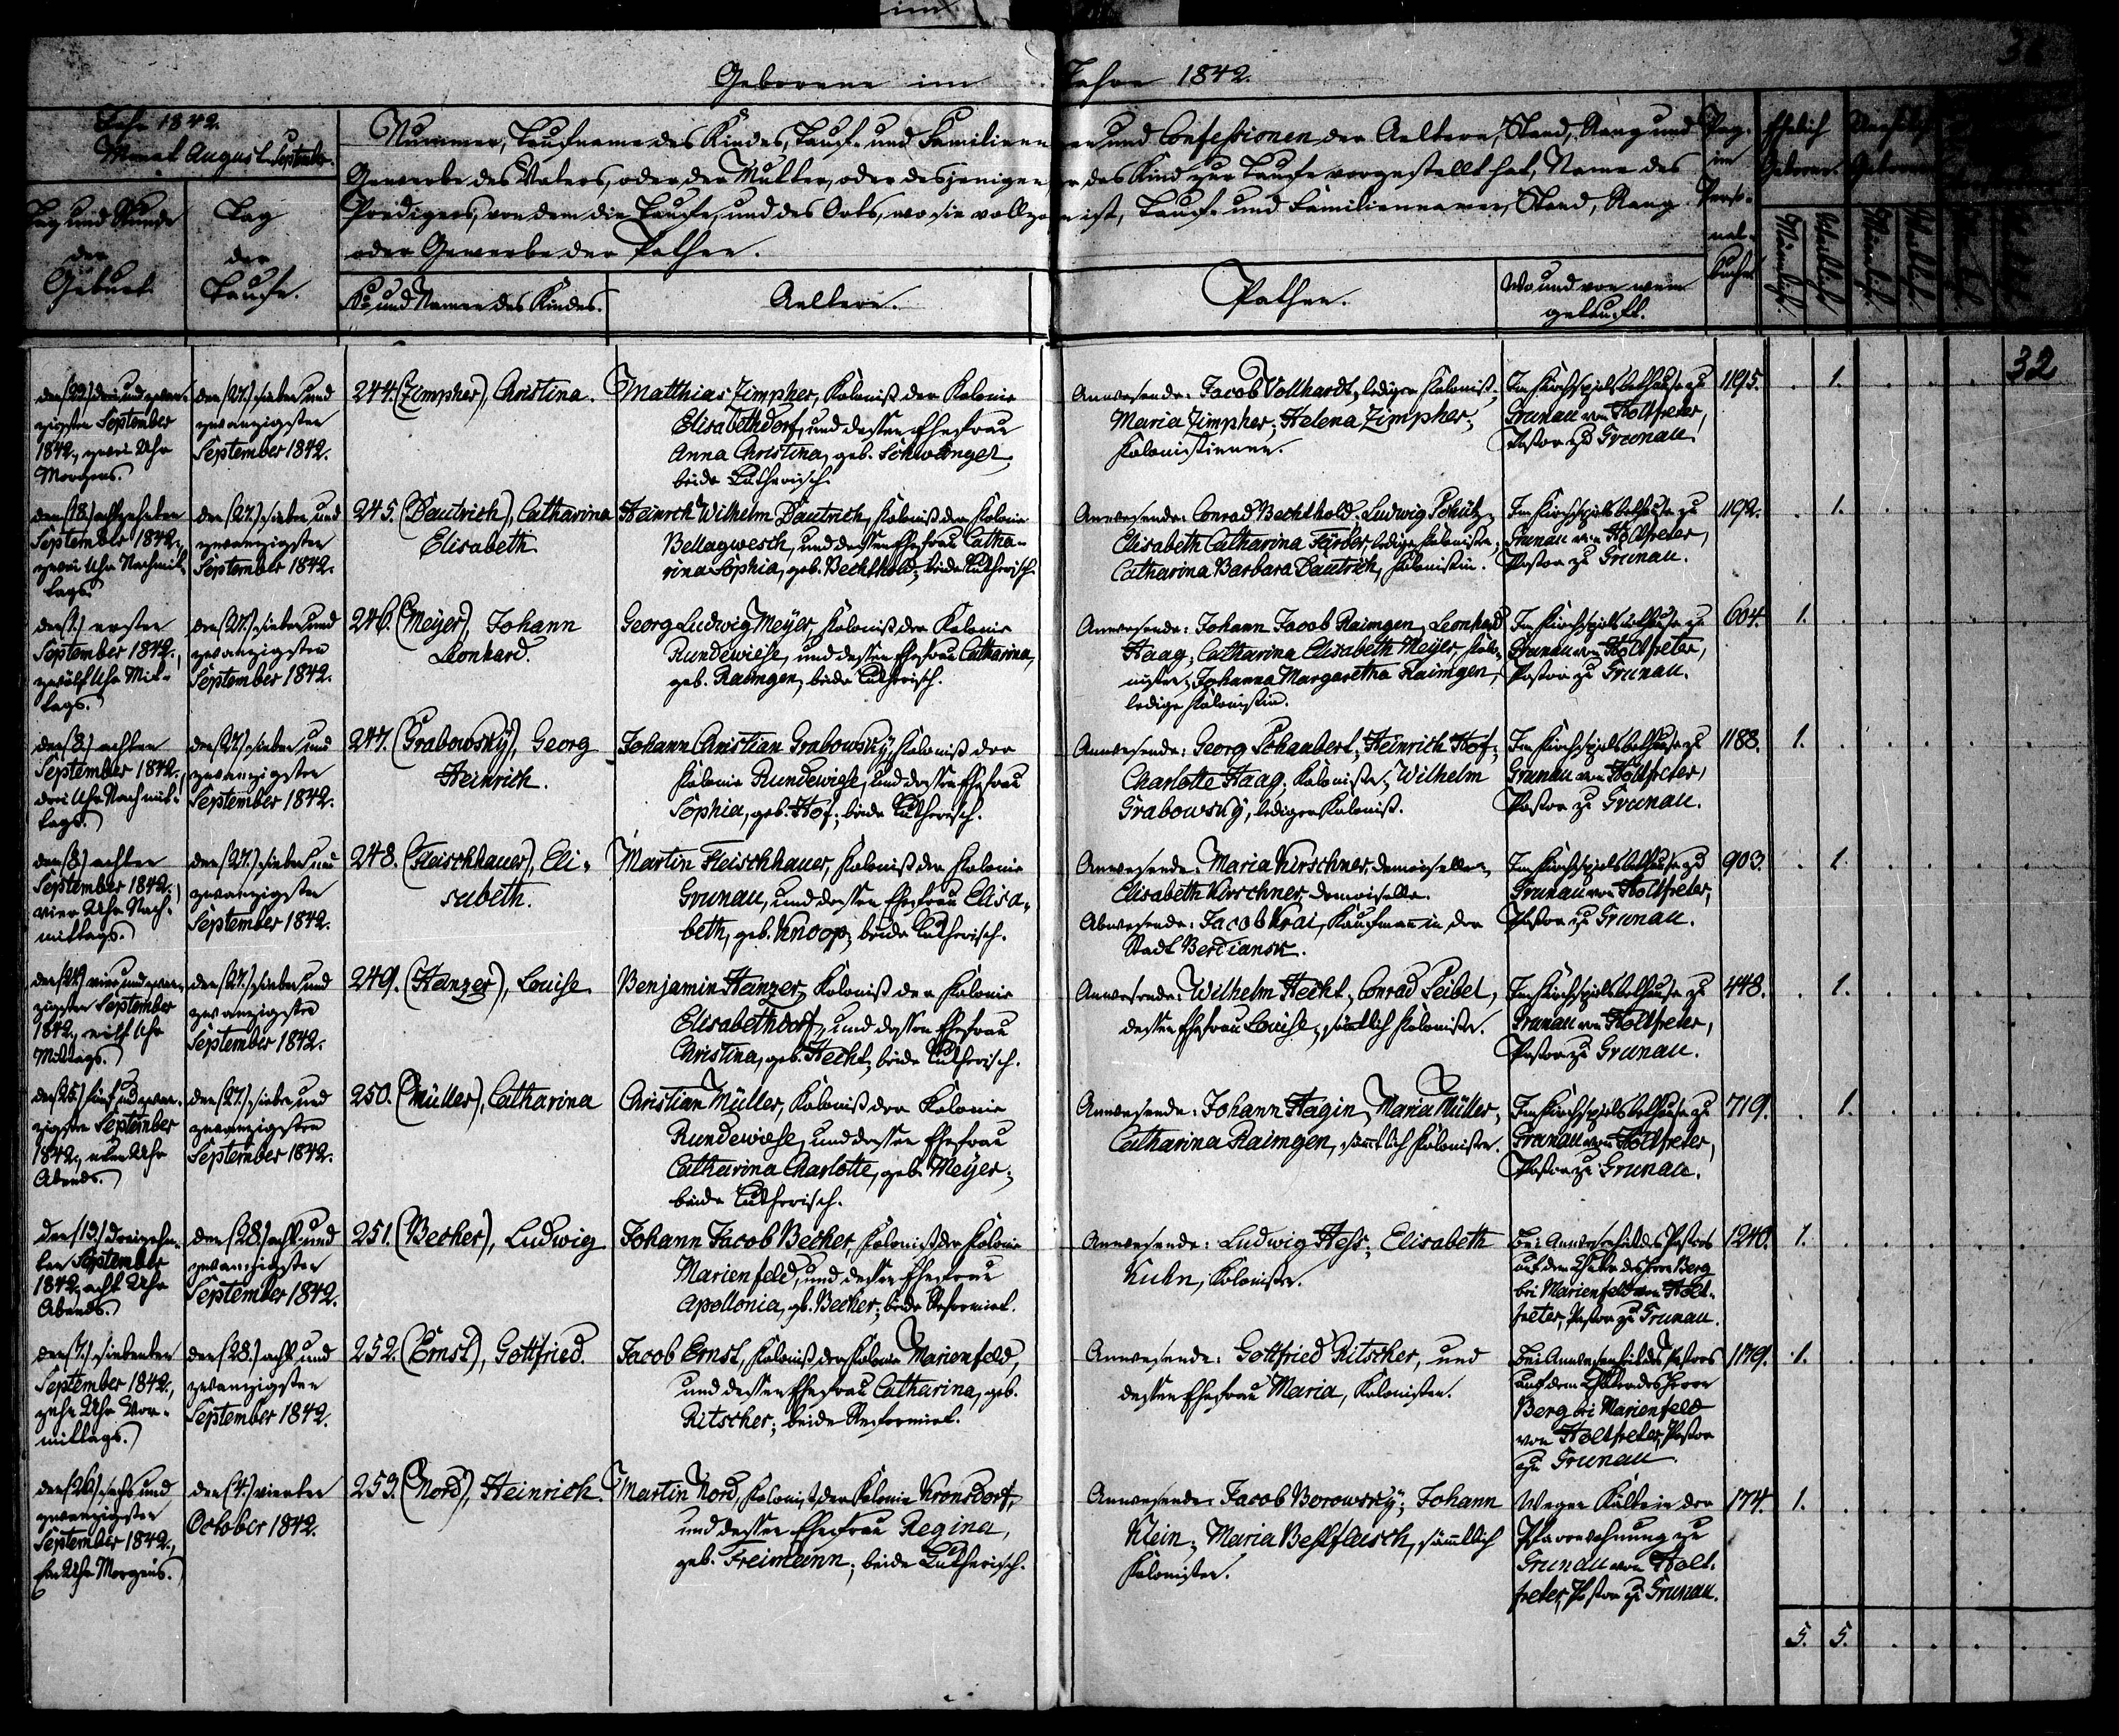 im
36
Geborene im Jahre 1842.
Jahr 1842.
Monat August u. September.
Tag und Stunde
der
Geburt.
Tag
der
Taufe.
Nummer, Taufname des Kindes, Tauf- und Familiennamen und Confessionen der Aeltern, Stand, Rang und
Gewerbe des Vaters, oder der Mutter, oder desjenigen der das Kind zur Taufe vorgestellt hat, Name des
Predigers, von dem die Taufe, und des Orts, wo sie vollzogen ist, Tauf- und Familiennamen, Stand, Rang
oder Gewerbe der Pathen.
No und Namen des Kindes.
Aeltern.
Pathen.
Wo und von wem
getauft.
Pag.
im
Perso-
nal-
buche.
Ehelich
Geborene.
Unehelich
Geborene
Männlich.
Weiblich.
Männlich.
Weiblich.
32
den (23.) drei und zwan-
zigsten September
1842., zwei Uhr
Morgens.
den (27.) sieben und
zwanzigsten
September 1842.
244. (Zimpher), Christina.
Matthias Zimpher, Kolonist der Kolonie
Elisabethdorf, und dessen Ehefrau
Anna Christina, geb. Schwengel,
beide Lutherisch.
Anwesende: Jacob Vollhardt, lediger Kolonist;
Maria Zimpher; Helena Zimpher;
Kolonistinnen.
Im Kirchspielsbethause zu
Grunau von Holtfreter,
Pastor zu Grunau.
1195. . 1. . . . .
den (18.) achtzehnten
September 1842.,
zwei Uhr Nachmit-
tags.
den (27.) sieben und
zwanzigsten
September 1842.
245. (Dautrich), Catharina
Elisabeth.
Heinrich Wilhelm Dautrich, Kolonist der Kolonie
Bellagwesch, und dessen Ehefrau Catha-
rina Sophia, geb. Bechthold; beide Lutherisch.
Anwesende: Conrad Bechthold; Ludwig Schütz;
Elisabeth Catharina Färber, ledige Kolonisten;
Catharina Barbara Dautrich, Kolonistin.
Im Kirchspielsbethause zu
Grunau von Holtfreter,
Pastor zu Grunau.
1192. . 1. . . . .
den (1.) ersten
September 1842.,
zwölf Uhr Mit-
tags.
den (27.) sieben und
zwanzigsten
September 1842.
246. (Meÿer), Johann
Leonhard.
Georg Ludwig Meÿer, Kolonist der Kolonie
Rundewiese, und dessen Ehefrau Catharina,
geb. Raimgen, beide Lutherisch.
Anwesende: Johann Jacob Raimgen, Leonhard
Haag, Catharina Elisabeth Meÿer, Kolo-
nisten; Johanna Margaretha Raimgen,
ledige Kolonistin.
Im Kirchspielsbethause zu
Grunau von Holtfreter,
Pastor zu Grunau.
604. 1. . . . . .
den (8.) achten
September 1842.,
drei Uhr Nachmit-
tags.
den (27.) sieben und
zwanzigsten
September 1842.
247. (Grabowskÿ), Georg
Heinrich.
Johann Christian Grabowskÿ, Kolonist der
Kolonie Rundewiese, und dessen Ehefrau
Sophia, geb. Hof; beide Lutherisch.
Anwesende: Georg Schaubert; Heinrich Hof;
Charlotte Haag; Kolonisten; Wilhelm
Grabowskÿ, lediger Kolonist.
Im Kirchspielsbethause zu
Grunau von Holtfreter,
Pastor zu Grunau.
1188. 1. . . . . .
den (8.) achten
September 1842.,
vier Uhr Nach-
mittags.
den (27.) sieben und
zwanzigsten
September 1842.
248. (Fleischhauer), Eli-
sabeth.
Martin Fleischhauer, Kolonist der Kolonie
Grunau, und dessen Ehefrau Elisa-
beth, geb. Knoop; beide Lutherisch.
Anwesende: Maria Kirschner, Demoiselle;
Elisabeth Kirschner, Demoiselle.
Abwesende: Jacob Krai, Kaufmann in der
Stadt Berdiansk.
Im Kirchspielsbethause zu
Grunau von Holtfreter,
Pastor zu Grunau.
903. . 1. . . . .
den (24.) vier und zwan-
zigsten September
1842., zwölf Uhr
Mittags.
den (27.) sieben und
zwanzigsten
September 1842.
249. (Hanzer), Louise.
Benjamin Hanzer, Kolonist der Kolonie
Elisabethdorf, und dessen Ehefrau
Christina, geb. Hecht, beide Lutherisch.
Anwesende: Wilhelm Hecht, Conrad Seibel,
dessen Ehefrau Louise, sämtlich Kolonisten.
Im Kirchspielsbethause zu
Grunau von Holtfreter,
Pastor zu Grunau.
448. . 1. . . . .
den (25.) fünf und zwan-
zigsten September
1842., neun Uhr
Abends.
den (27.) sieben und
zwanzigsten
September 1842.
250. (Müller), Catharina
Christian Müller, Kolonist der Kolonie
Rundewiese, und dessen Ehefrau
Catharina Charlotte, geb. Meÿer;
beide Lutherisch.
Anwesende: Johann Hagin, Maria Müller,
Catharina Raimgen, sämtlich Kolonisten.
Im Kirchspielsbethause zu
Grunau von Holtfreter,
Pastor zu Grunau.
719. . 1. . . . .
den (13.) dreizehn-
ten September
1842., acht Uhr
Abends.
den (28.) acht und
zwanzigsten
September 1842.
251. (Becker), Ludwig
Johann Jacob Becker, Kolonist der Kolonie
Marienfeld, und dessen Ehefrau
Apollonia, geb. Becker; beide Reformirt.
Anwesende: Ludwig Hess; Elisabeth
Kuhn, Kolonisten.
Bei Anwesenheit des Pastors
auf dem Chutor des Herrn Berg
bei Marienfeld von Holt-
freter, Pastor zu Grunau.
1240. 1. . . . . .
den (7.) siebenten
September 1842.,
zehn Uhr Vor-
mittags.
den (28.) acht und
zwanzigsten
September 1842.
252. (Ernst), Gottfried.
Jacob Ernst, Kolonist der Kolonie Marienfeld,
und dessen Ehefrau Catharina, geb.
Ritscher; beide Reformirt.
Anwesende: Gottfried Ritscher, und
dessen Ehefrau Maria, Kolonisten.
Bei Anwesenheit des Pastors
auf dem Chutor des Herrn
Berg bei Marienfeld
von Holtfreter, Pastor
zu Grunau.
1179. 1. . . . . .
den (26.) sechs und
zwanzigsten
September 1842.,
Ein Uhr Morgens.
den (4.) vierten
October 1842.
253. (Nord), Heinrich.
Martin Nord, Kolonist der Kolonie Kronsdorf,
und dessen Ehefrau Regina,
geb. Freimann; beide Lutherisch.
Anwesende: Jacob Borowskÿ; Johann
Klein; Maria Beslflaisch, sämtlich
Kolonisten.
Wegen Kälte in der
Pfarrwohnung zu
Grunau von Holt-
freter, Pastor zu Grunau.
174. 1. . . . . .
5. 5. . . . .